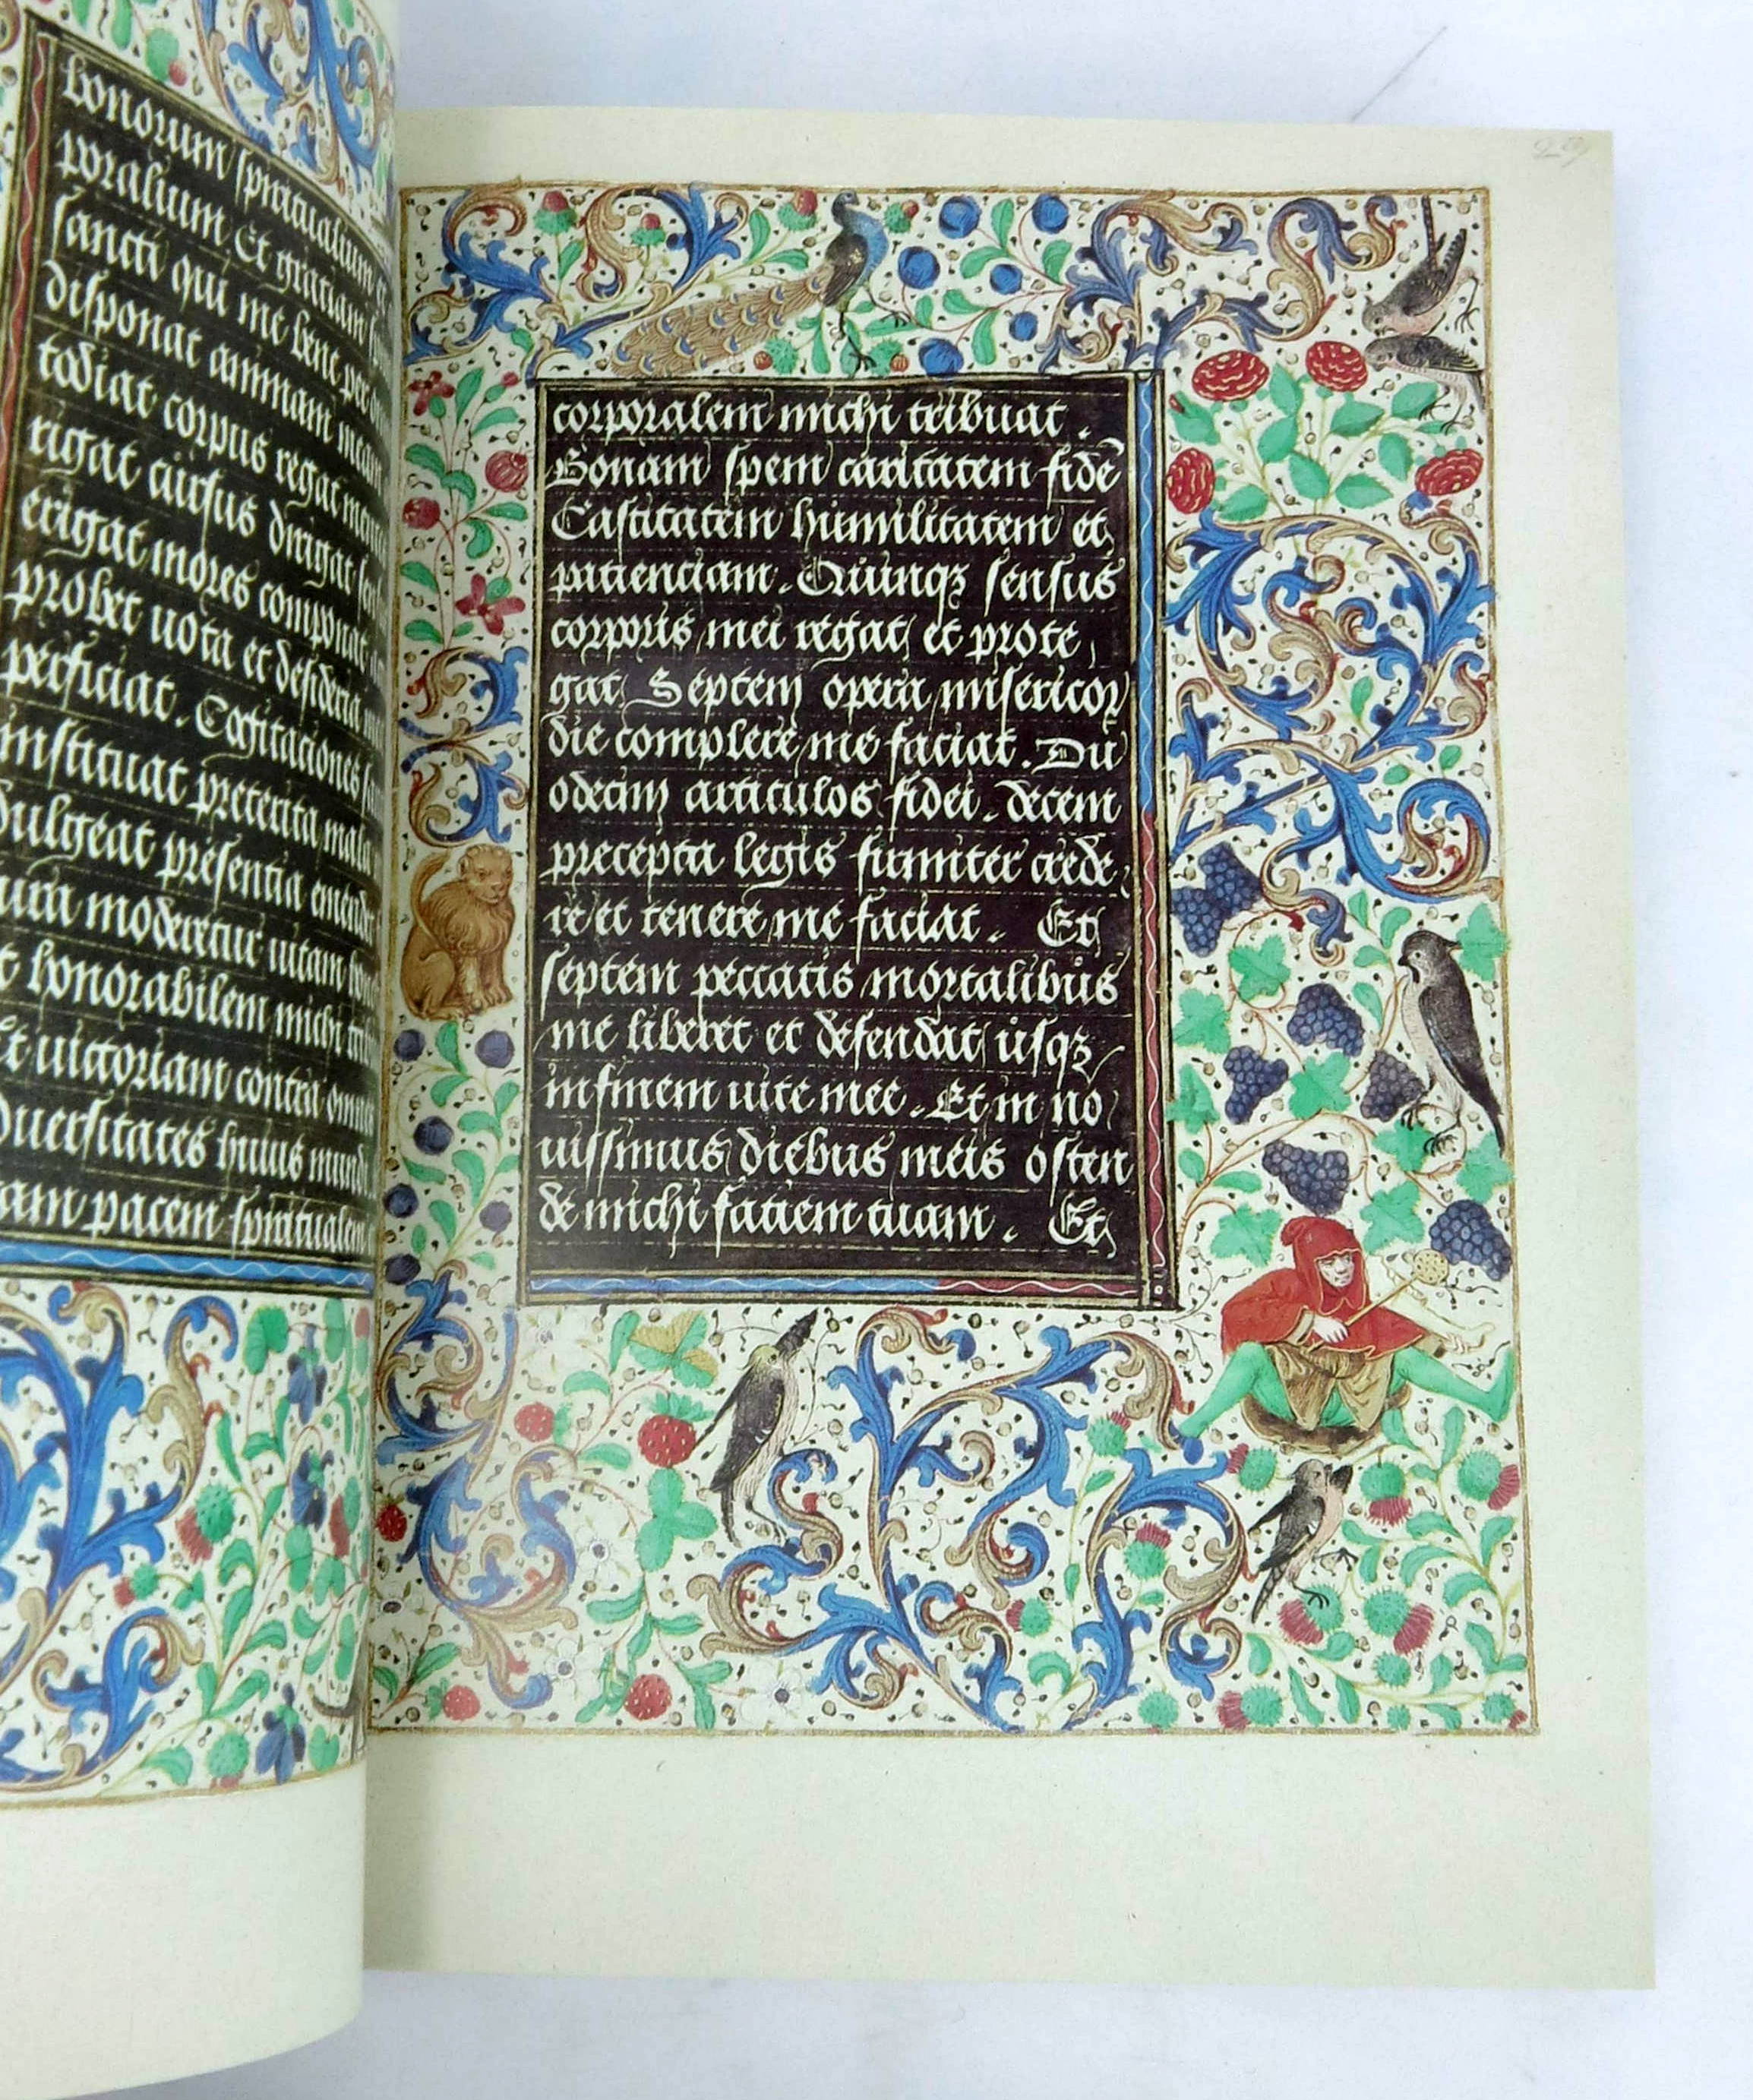 bonorum spiritualium et
poralium Et graciam
sancti qui me bene per
disponat animam meam
todiat corpus regat
rigat cursus dirigat
erigat mores componat
probet uota et desideria
perficiat. Cogitationes
instituat preterita mala
dulgeat presentia
moderetur uitam
honorabilem michi
Et uictoriam contra omnes
duersitates huius mundi
pacem spiritualem
29
corporalem michi tribuat.
Bonam spem caritatem fidē
Castitatem humilitatem et
patienciam. Quinqꝫ sensus
corporis mei regat et prote
gat Septem opera misericor
die complere me faciat. Du
odecim articulos fidei. decem
precepta legis firmiter crede
re et tenere me faciat. Et
septem peccatis mortalibus
me liberet et defendat usqꝫ
in finem uite mee. Et in no
uissimus diebus meis osten
de michi faciem tuam. Et